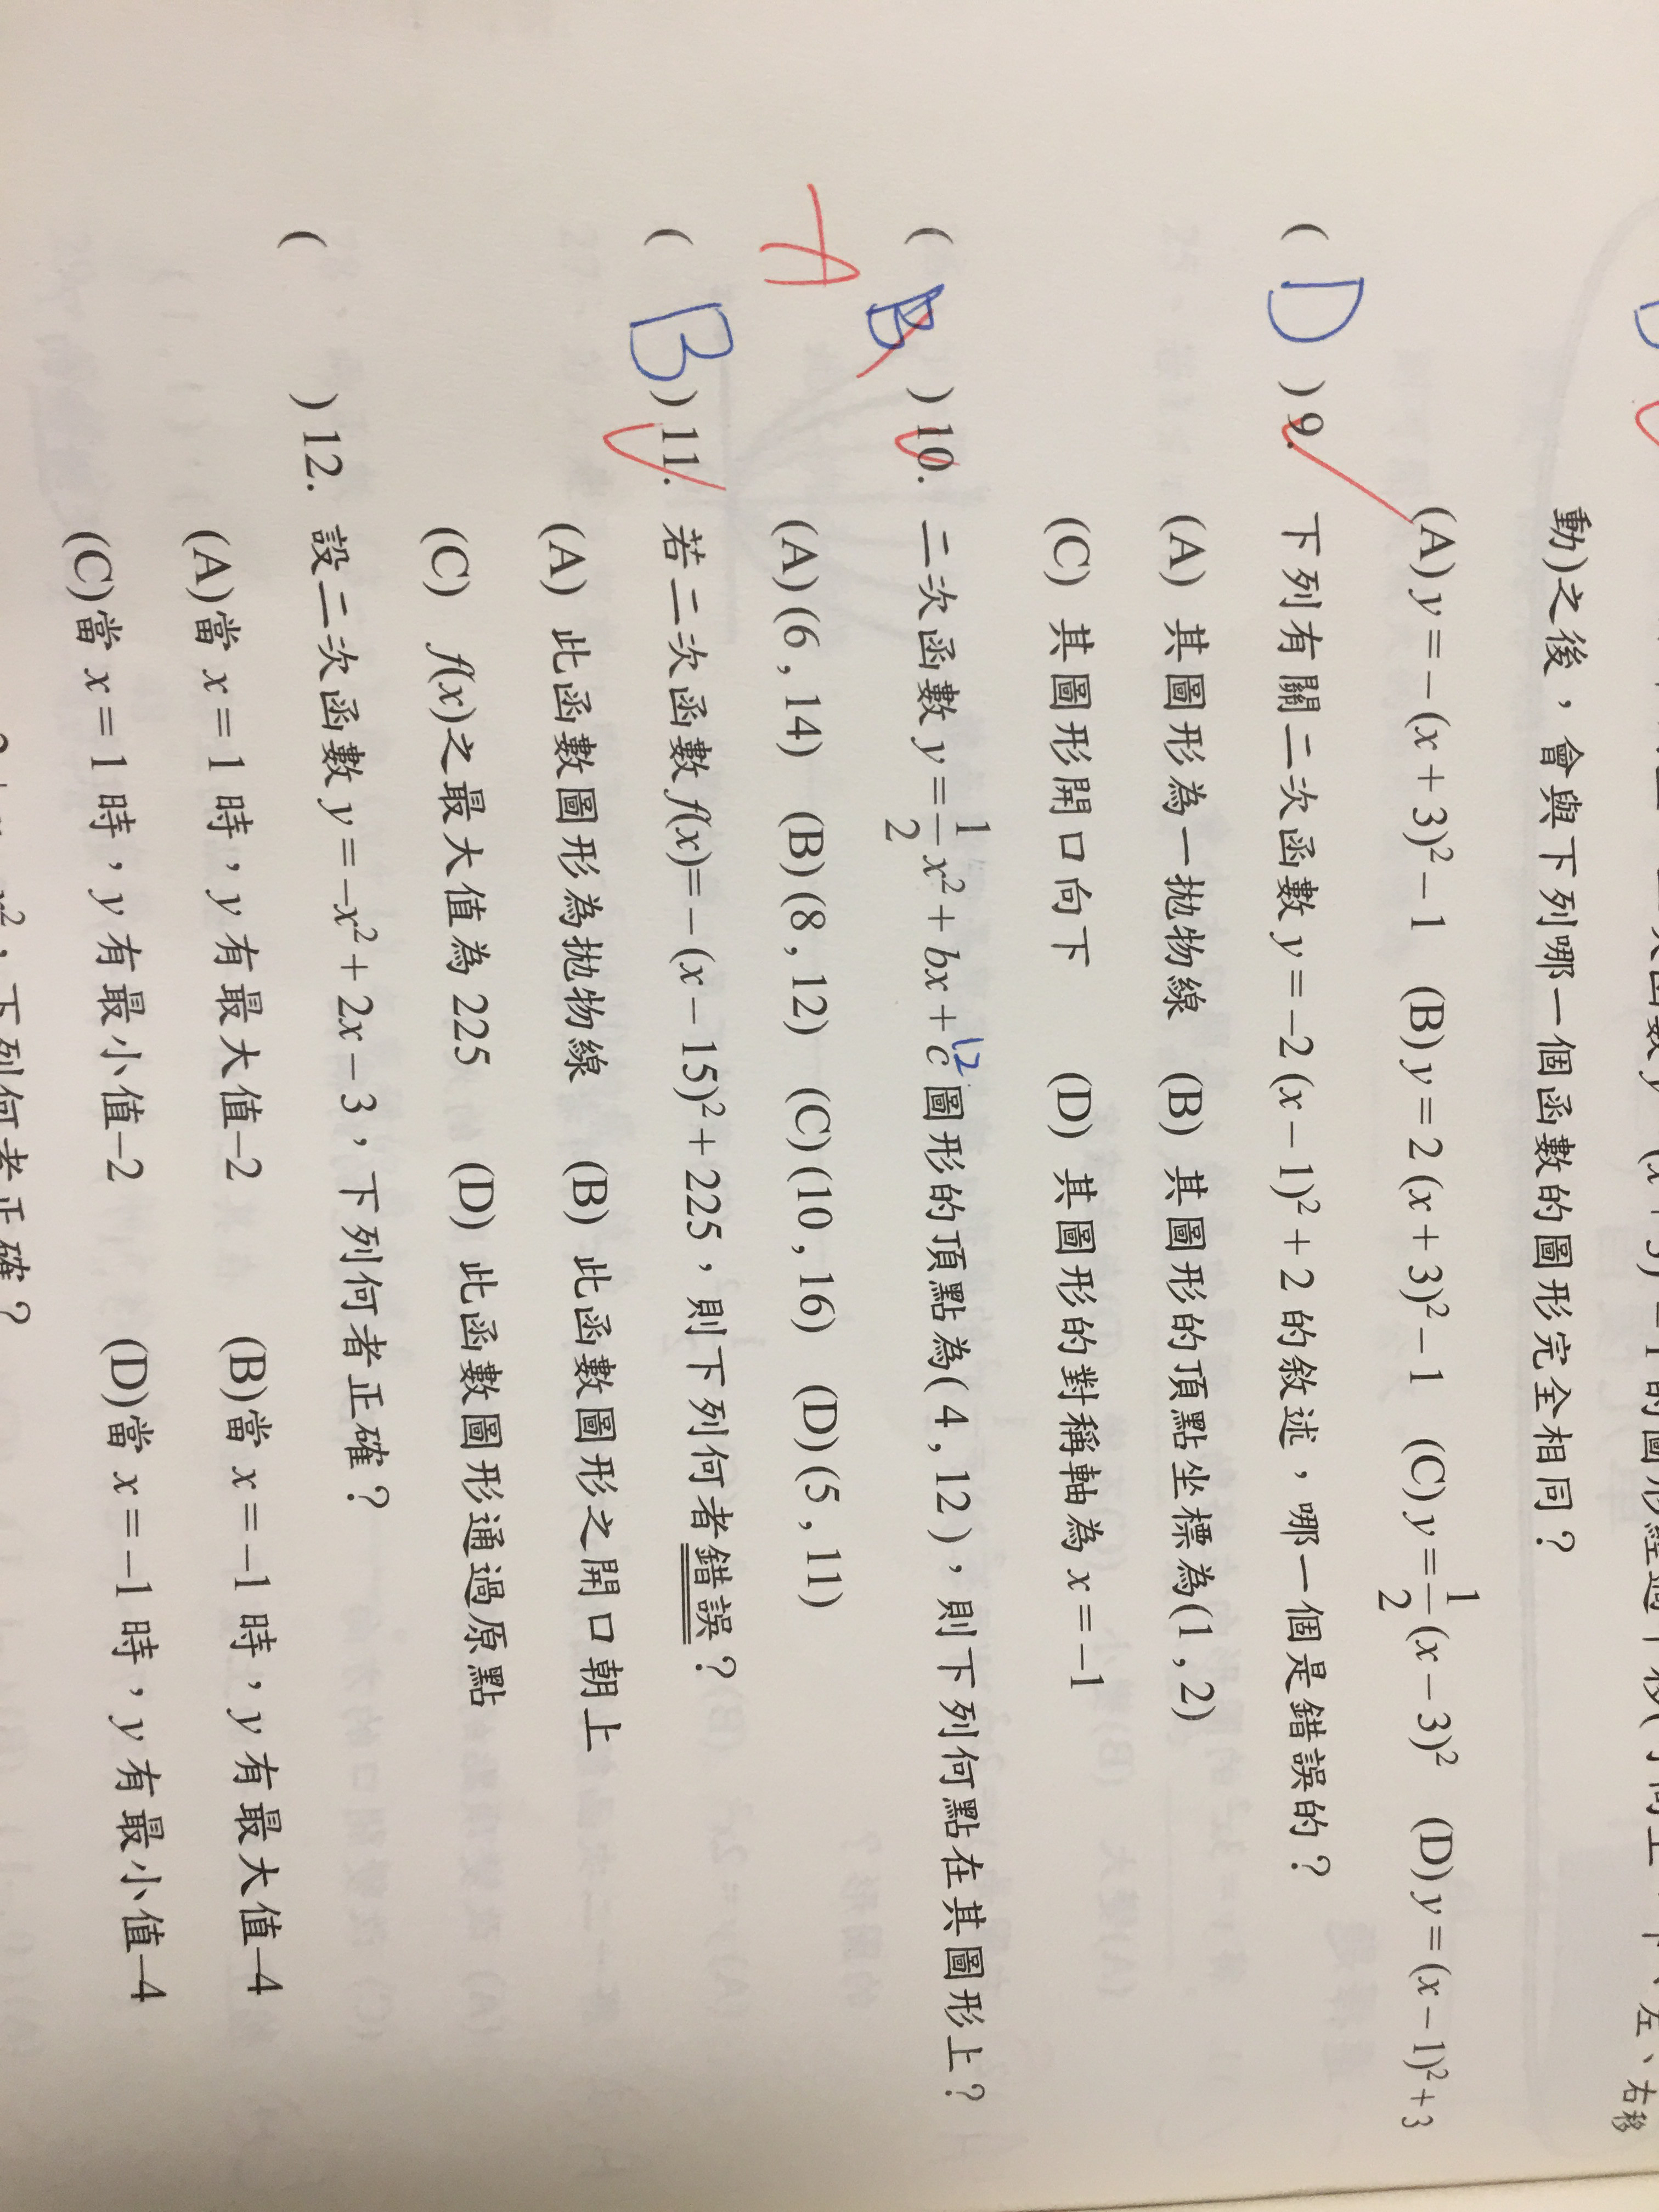 動)之後，會與下列哪一個函數的圖形完全相同？
(A) y = −(x + 3)² − 1 (B) y = 2(x + 3)² − 1 (C) y = 1/2(x − 3)² (D) y = (x − 1)² + 3
( D ) 9. 下列有關二次函數 y = −2(x − 1)² + 2 的敘述，哪一個是錯誤的？
(A) 其圖形為一拋物線 (B) 其圖形的頂點坐標為(1 , 2)
(C) 其圖形開口向下 (D) 其圖形的對稱軸為 x = −1
( B ) 10. 二次函數 y = 1/2x² + bx + c 圖形的頂點為( 4 , 12 )，則下列何點在其圖形上？
12
A
(A) (6 , 14) (B) (8 , 12) (C) (10 , 16) (D) (5 , 11)
( B ) 11. 若二次函數 f(x) = −(x − 15)² + 225，則下列何者錯誤？
(A) 此函數圖形為拋物線 (B) 此函數圖形之開口朝上
(C) f(x)之最大值為 225 (D) 此函數圖形通過原點
( ) 12. 設二次函數 y = −x² + 2x − 3，下列何者正確？
(A)當 x = 1 時，y 有最大值−2 (B)當 x = −1 時，y 有最大值−4
(C)當 x = 1 時，y 有最小值−2 (D)當 x = −1 時，y 有最小值−4
下列何者正確？